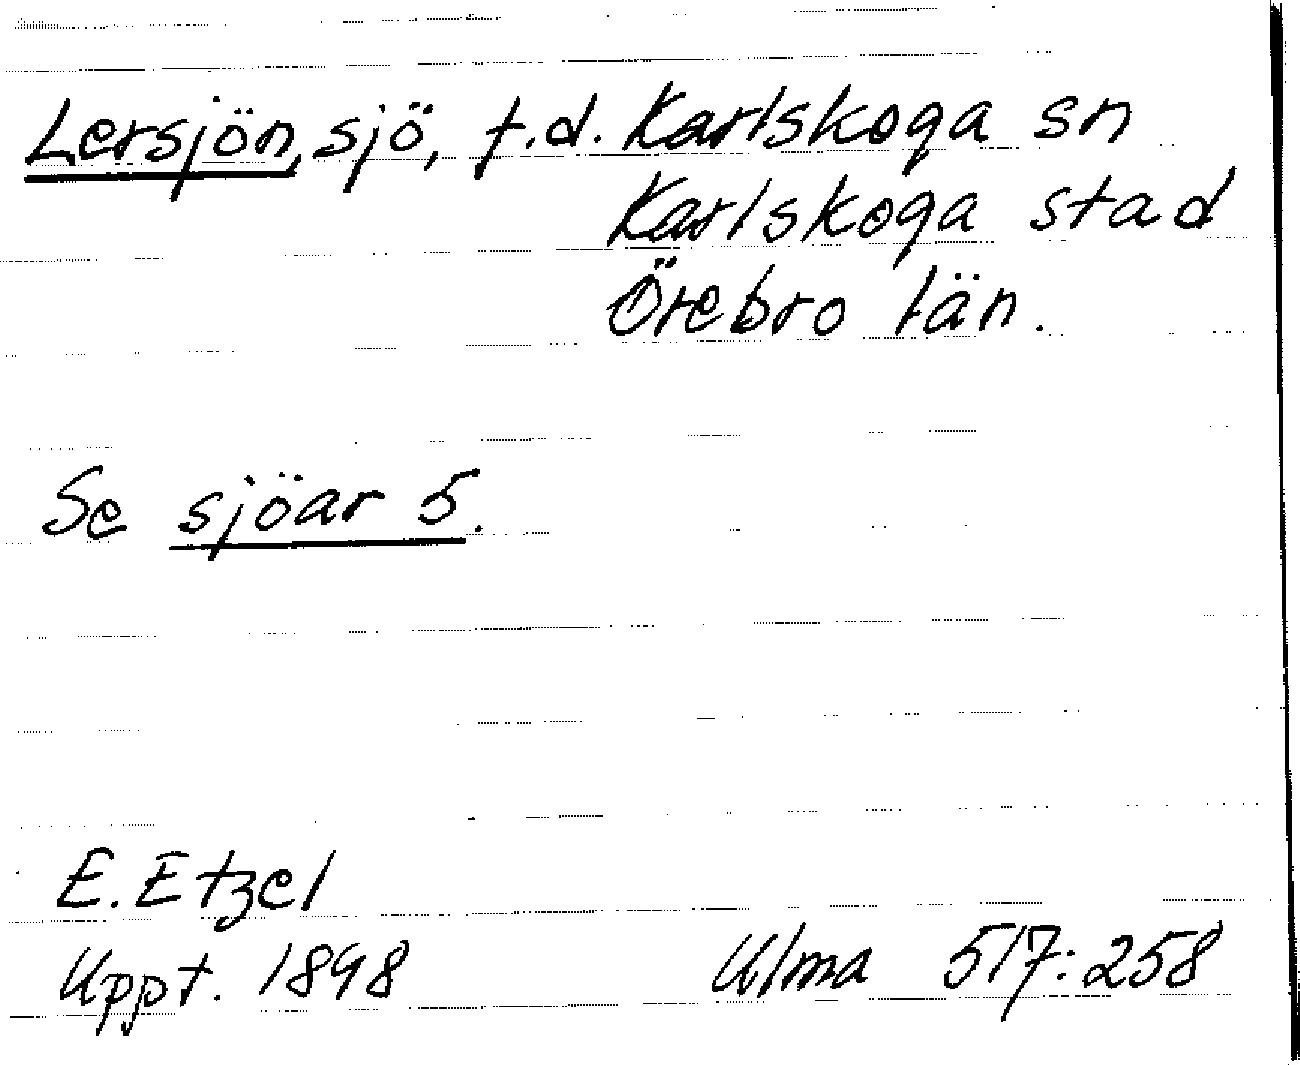 Lersjön, sjö, f.d. Karlskoga sn
Karlskoga stad
Örebro län.
Se sjöar 5.
E. Etzel
Uppt. 1898
Ulma 517:258